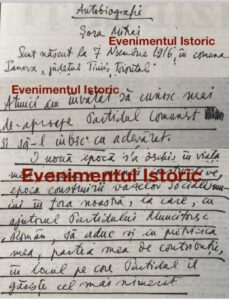 Autobiografie
Șora Mihai
Evenimentul Istoric
Sunt născut la 7 Noembrie 1916, în comuna
Ianova, județul Timiș,
Evenimentul Istoric
Atunci am învățat să cunosc mai
de-aproape Partidul Comunist
și să-l iubesc cu adevărat.
O nouă epocă s'a deschis în viața
Evenimentul Istoric
epoca construirii bazelor socialis-
mului în țara noastră, la care, cu
ajutorul Partidului Muncitoresc
Român, să aduc și eu petricica
mea, partea mea de contribuție,
în locul pe care Partidul îl
găsește cel mai nimerit